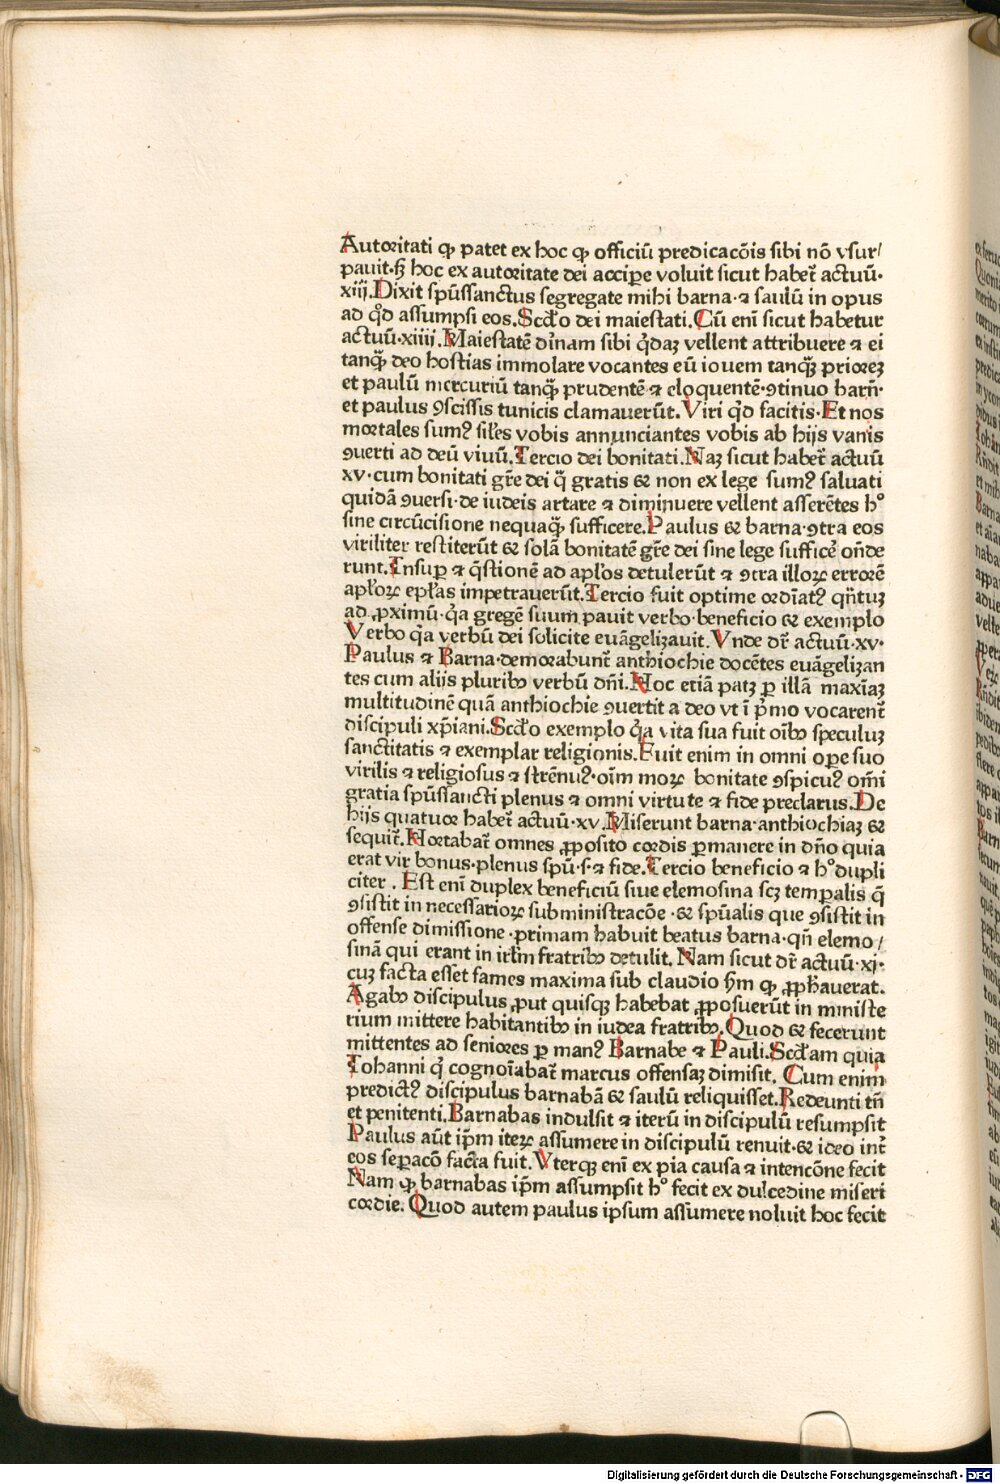 Autoritati ꝙ patet ex hoc ꝙ officiū predicacōis sibi nō vsur/
pauit·sꝫ hoc ex autoritate dei accipe voluit sicut habet᷑ actuū·
xiij.Dixit spūssanctus segregate mihi barna·⁊ saulū in opus
ad qd̓ assumpsi eos.Scd̓o dei maiestati.Cū enī sicut habetur
actuū·xiiij.Maiestatē dinam sibi q̄daꝫ vellent attribuere ⁊ ei
tanqꝫ deo hostias immolare vocantes eū iouem tanqꝫ prioreꝫ
et paulū mercuriū tanqꝫ prudentē ⁊ eloquentē·ꝯtinuo barn̄·
et paulus ꝯscissis tunicis clamauerūt.Viri qd̓ facitis·Et nos
mortales sumꝰ sil̓es vobis annunciantes vobis ab hijs vanis
ꝯuerti ad deū viuū.Tercio dei bonitati.Naꝫ sicut habet᷑ actuū
xv·cum bonitati gr̄e dei q̄ gratis & non ex lege sumꝰ saluati
quidā ꝯuersi·de iudeis artare ⁊ diminuere vellent asserētes hº
sine circūcisione nequaqꝫ sufficere.Paulus & barna·ꝯtra eos
viriliter restiterūt & solā bonitatē gr̄e dei sine lege sufficē on̄de
runt.Insuꝑ ⁊ q̄stionē ad apl̓os detulerūt ⁊ ꝯtra illoꝝ errorē
apl̓oꝝ epl̓as impetrauerūt.Tercio fuit optime ordīatꝰ qn̄tuꝫ
ad ꝓximū·q̓a gregē suum pauit verbo·beneficio & exemplo
Verbo q̓a verbū dei solicite euāgelizauit.Vnde dr̄ actuū·xv·
Paulus ⁊ Barna·demorabunt᷑ anthiochie docētes euāgelizan
tes cum alijs pluribꝰ verbū dn̄i.Hoc etiā patꝫ ꝑ illā maxīaꝫ
multitudinē quā anthiochie ꝯuertit a deo vt ī p̓mo vocarent᷑
discipuli xp̄iani.Scd̓o exemplo q̓a vita sua fuit oībꝰ speculuꝫ
sanctitatis ⁊ exemplar religionis.Fuit enim in omni oꝑe suo
virilis ⁊ religiosus ⁊ strēnuꝰ·oīm moꝝ bonitate ꝯspicuꝰ om̄i
gratia spūssancti plenus ⁊ omni virtute ⁊ fide preclarus.De
hijs quatuor habet᷑ actuū·xv.Miserunt barna·anthiochiaꝫ &
sequit᷑.Hortabat᷑ omnes ꝓposito cordis ꝑmanere in dn̄o quia
erat vir bonus·plenus spū·s·⁊ fide.Tercio beneficio ⁊ hº dupli
citer . Est enī duplex beneficiū siue elemosina scꝫ temꝑalis q̄
ꝯsistit in necessarioꝝ subministracōe ·& spūalis que ꝯsistit in
offense dimissione·primam habuit beatus barna·qn̄ elemo /
sinā qui erant in irl̓m fratribꝰ detulit. Nam sicut dr̄ actuū·xj·
cuꝫ facta esset fames maxima sub claudio s̓m ꝙ ꝓph̄auerat.
Agabꝰ discipulus ꝓut quisqꝫ habebat ꝓposuerūt in ministe
rium mittere habitantibꝰ in iudea fratribꝰ.Quod & fecerunt
mittentes ad seniores ꝑ manꝰ Barnabe ⁊ Pauli.Scd̓am quia
Iohanni q̓ cognoīabat᷑ marcus offensaꝫ dimisit. Cum enim
predictꝰ discipulus barnabā & saulū reliquisset.Redeunti tn̄
et penitenti.Barnabas indulsit ⁊ iterū in discipulū resumpsit
Paulus aūt ip̄m iteꝝ assumere in discipulū renuit·& ideo int᷑
eos seꝑacō facta fuit.Vterqꝫ enī ex pia causa ⁊ intencōne fecit
Nam ꝙ barnabas ip̄m assumpsit hº fecit ex dulcedine miseri
cordie. Quod autem paulus ipsum assumere noluit hoc fecit
Digitalisierung gefördert durch die Deutsche Forschungsgemeinschaft - DFG